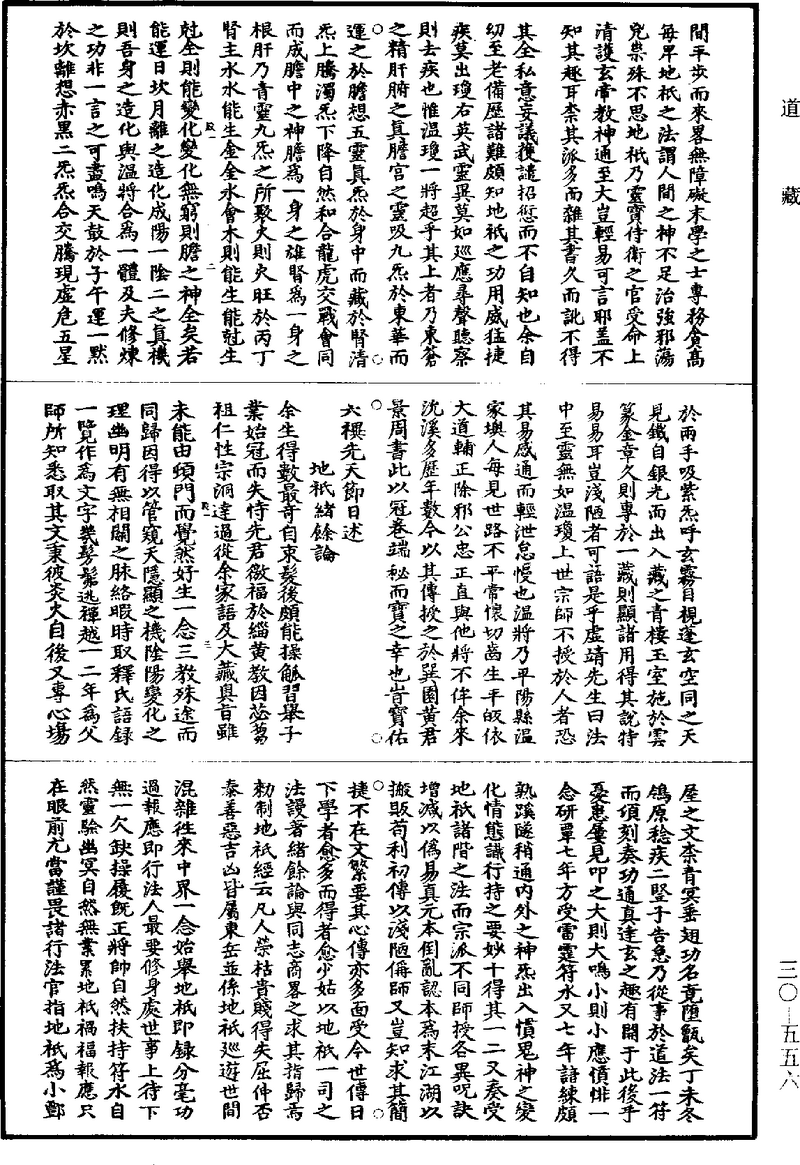 道藏
間平步而來畧無障礙末學之士專務貪高
每卑地祇之法謂人間之神不足治強邪蕩
兇祟殊不思地祇乃靈寶侍衛之官受命上
清護玄帝教神通至大豈輕易可言耶蓋不
知其趣耳柰其派多而雜其書久而訛不得
其全私意妄議獲譴招愆而不自知也余自
幼至老備歷諸難頗知地祇之功用威猛捷
疾莫出瓊右英武靈異莫如巡應尋聲聽察
則去疾也惟溫瓊一將超乎其上者乃東蒼
之精肝腑之真膽宮之靈吸九炁於東華而
運之於膽想五靈真炁於身中而藏於腎清
炁上騰濁炁下降自然和合龍虎交戰會同
而成膽中之神膽為一身之雄腎為一身之
根肝乃青靈九炁之所聚火則火旺於丙丁
腎主水水能生金金水會木則能生能尅生
尅全則能變化變化無窮則膽之神全矣若
能運日坎月離之造化成陽一陰二之真機
則吾身之造化與溫將合為一體及夫修煉
之功非一言之可盡鳴天鼓於子午運一黙
於坎離想赤黑二炁炁合交騰現虛危五星
於兩手吸紫炁呼玄霧目視蓬玄空同之天
見鐵自銀光而出入藏之青棲玉室施於雲
篆金章久則專於一藏則顯諸用得其說特
易易耳豈淺陋者可語是乎虛靖先生曰法
中至靈無如溫瓊上世宗師不授於人者恐
其易感通而輕泄怠慢也溫將乃平陽縣溫
家墺人每見世路不平常懷切齒生平皈依
大道輔正除邪公忠正直與他將不侔余來
沈溪多歷年數今以其傳授之於巽園黄君
景周書此以冠卷端秘而寶之幸也旹寶佑
六禩先天節日述
地祇緒餘論
余生得數最竒自束髮後頗能操觚習舉子
業始冠而失恃先君徼福於緇黄教因苾蒭
祖仁性宗洞達過從余家語及大藏奥旨雖
未能由頓門而覺然好生一念三教殊途而
同歸因得以管窺天隱顯之機陰陽變化之
理幽明有無相關之脉絡暇時取釋氏語録
一覽作為文字㡬髣髴逃禪越一二年為父
師所知悉取其文秉彼炎火自後又專心場
屋之文柰青冥垂翅功名竟墮甑矣丁未冬
鴒原稔疾二竪子告急乃從事於道法一符
而頃刻奏功通真達玄之趣有開于此後乎
憂患屢見叩之大則大鳴小則小應憤悱一
念研覃七年方受雷霆符水又七年諳練頗
熟蹊隧稍通内外之神炁出入憤鬼神之變
化情態議行持之要妙十得其一二又奏受
地祇諸階之法而宗派不同師授各異呪訣
增減以偽易真元本倒亂認本為末江湖以
搬販苟利初傳以淺陋偁師又豈知求其簡
捷不在文繁要其心傳亦多面受今世傳日
下學者愈多而得者愈少姑以地祇一司之
法謾著緒餘論與同志商畧之求其指歸焉
勑制地祇經云凡人榮枯貴賤得失屈伸否
泰善惡吉凶皆屬東岳並係地祇巡遊世間
混雜往來中界一念始舉地祇即録分毫功
過報應即行法人最要修身處世事上待下
無一欠缺操履旣正將帥自然扶持符水自
然靈驗幽冥自然無業累地祇禍福報應只
在眼前尤當謹畏諸行法官指地祇為小鄽
三〇—五五六